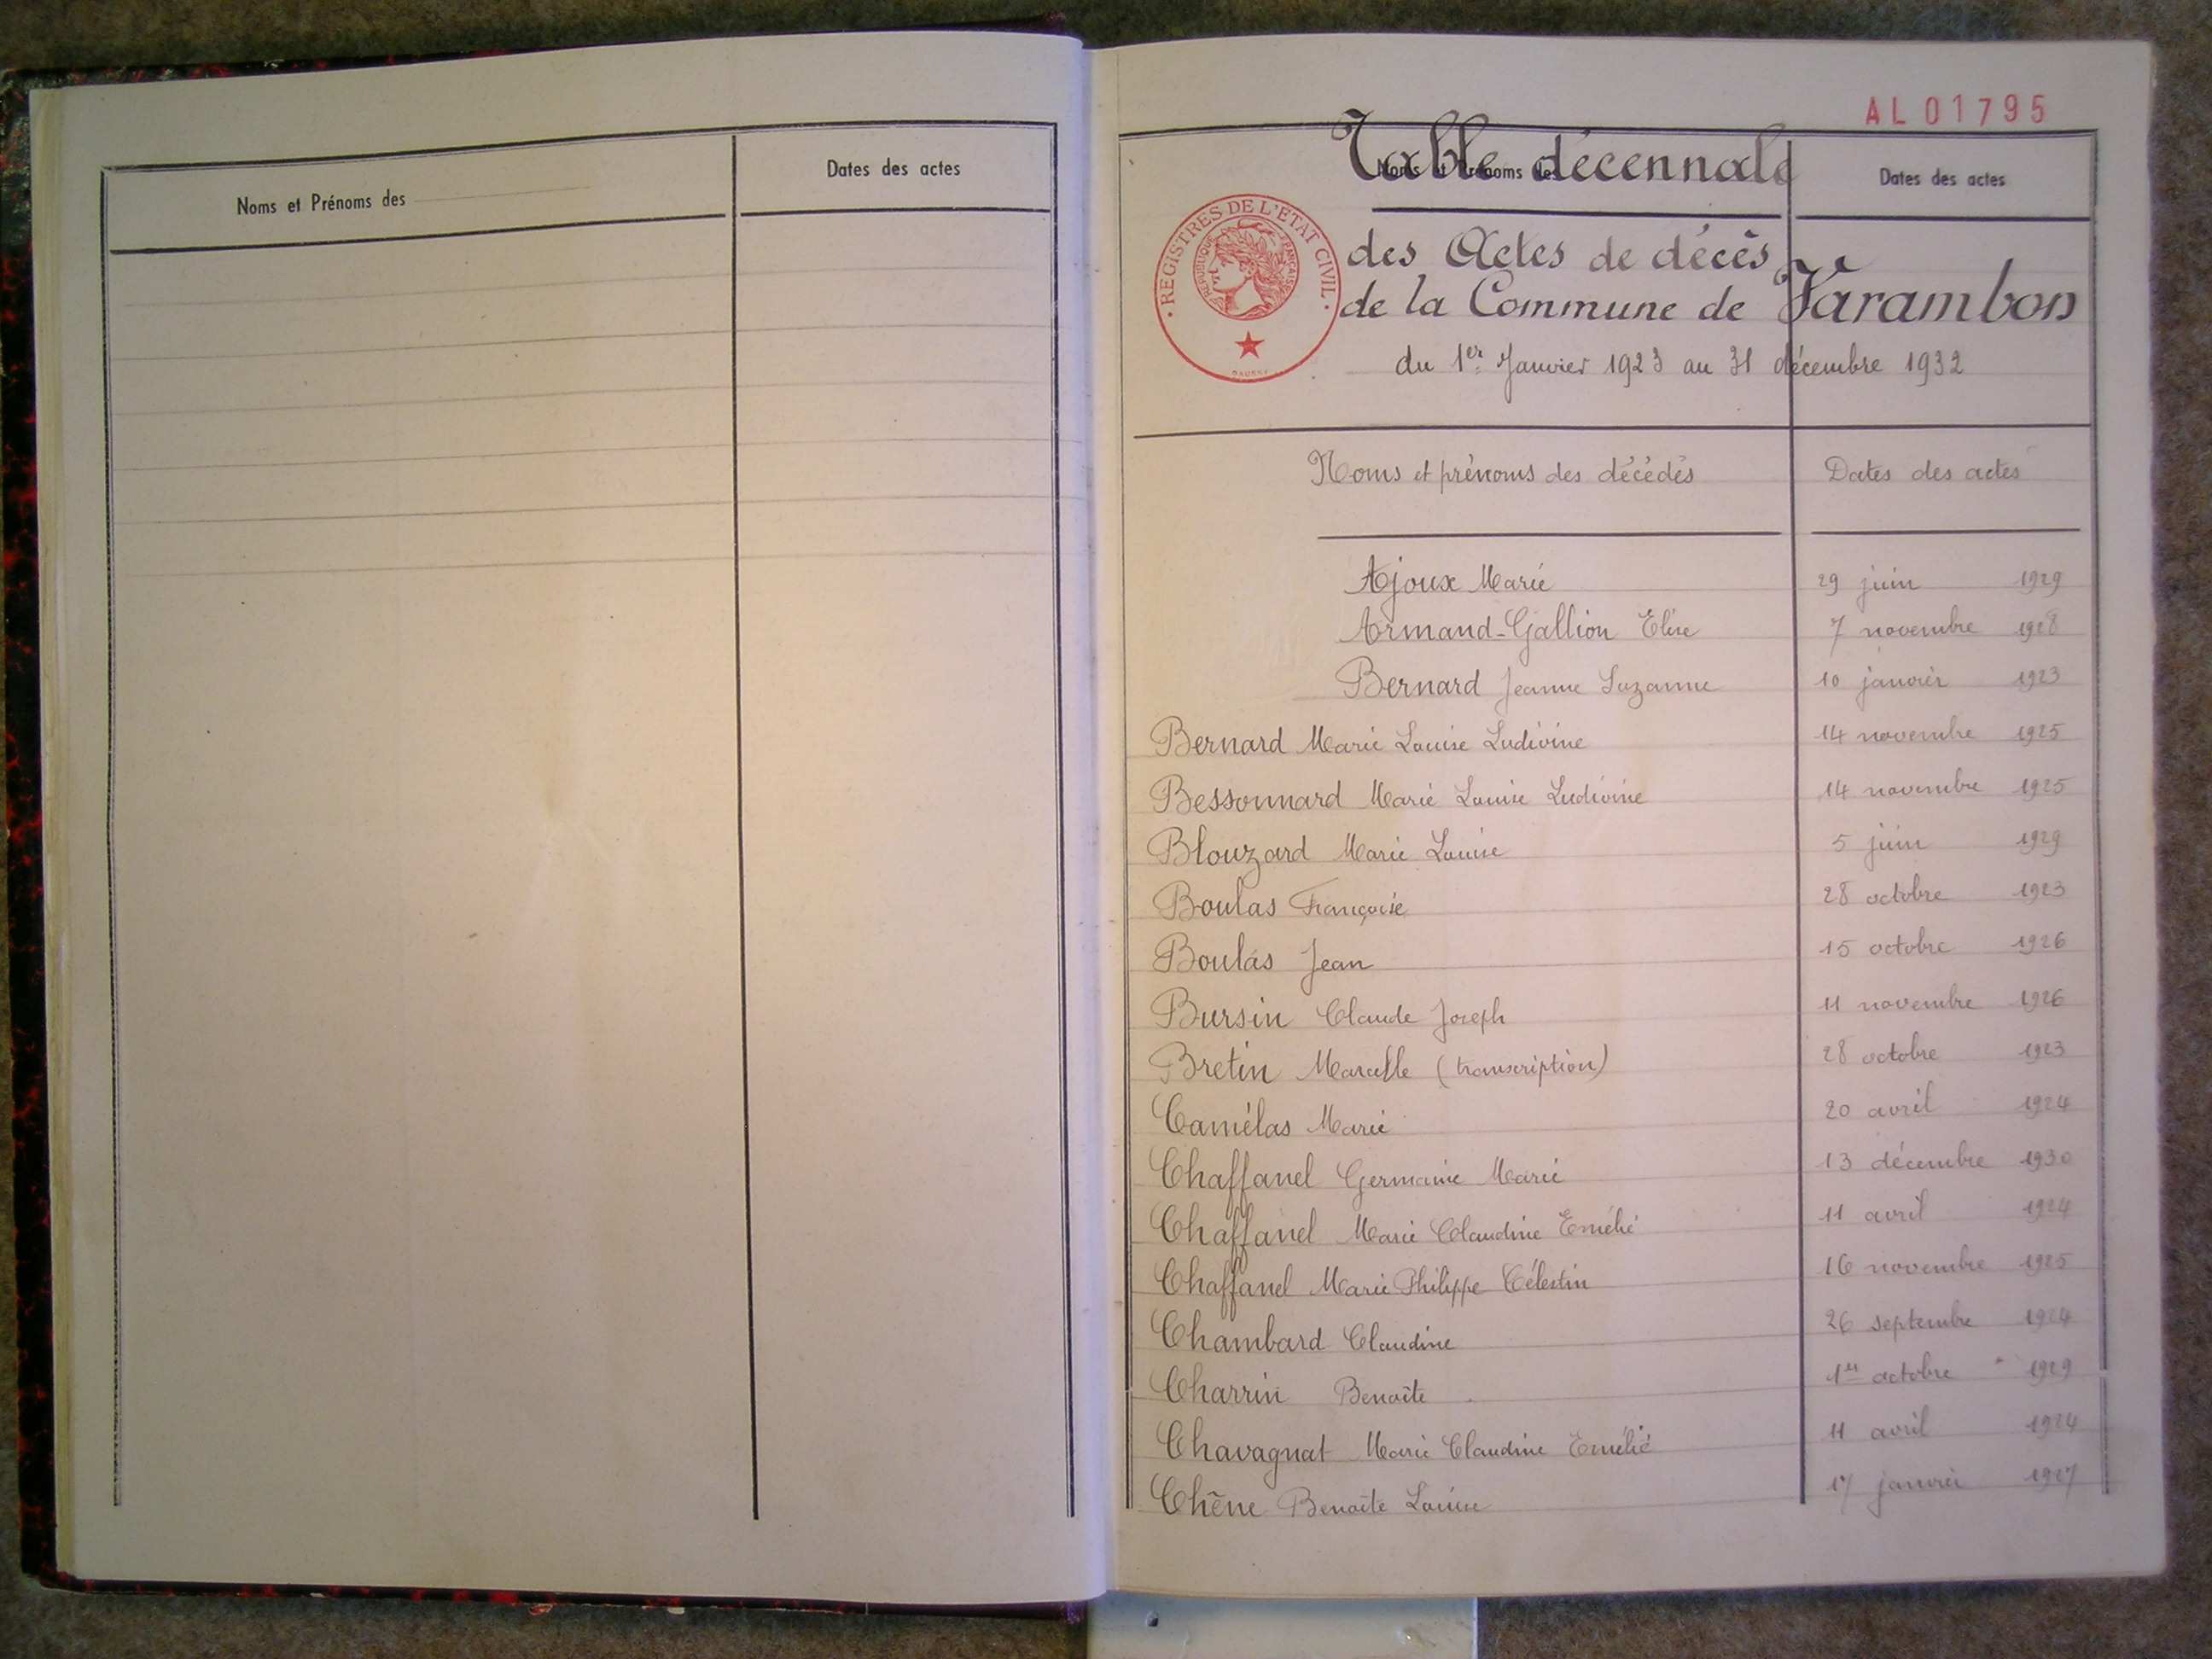 Noms et Prénoms des
Dates des actes
AL01795
Table décennale
Noms et Prénoms des
Dates des actes
REGISTRES DE L'ETAT CIVIL
REPUBLIQUE FRANÇAISE
des Actes de décès
de la Commune de Varambon
du 1er Janvier 1923 au 31 décembre 1932
Noms et prénoms des décédés Dates des actes
Ajoux Marie 29 juin 1929
Armand-Gallion Elise 7 novembre 1928
Bernard Jeanne Suzanne 10 janvier 1923
Bernard Marie Louise Ludivine 14 novembre 1925
Bessonnard Marie Louise Ludivine 14 novembre 1925
Blouzard Marie Louise 5 juin 1929
Boulas Françoise 28 octobre 1923
Boulas Jean 15 octobre 1926
Bursin Claude Joseph 11 novembre 1926
Bretin Marcelle (transcription) 28 octobre 1923
Camélas Marie 20 avril 1924
Chaffanel Germaine Marie 13 décembre 1930
Chaffanel Marie Claudine Emélie 11 avril 1924
Chaffanel Marie Philippe Célestin 16 novembre 1925
Chambard Claudine 26 septembre 1924
Charrin Benoîte 1er octobre 1929
Chavagnat Marie Claudine Emélie 11 avril 1924
Chêne Benoîte Louise 17 janvier 1927